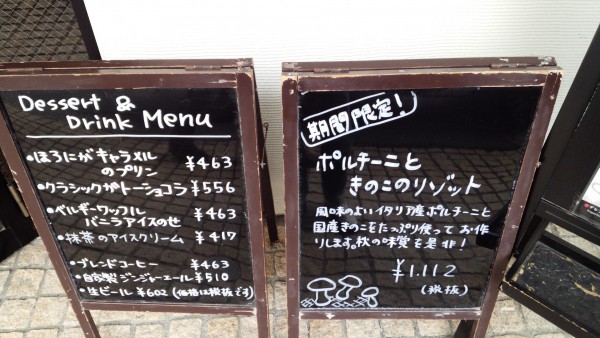 Dessert &
Drink Menu
・ほろにがキャラメル
のプリン ¥463
・クラシックガトーショコラ ¥556
・ベルギーワッフル
バニラアイスのせ ¥463
・抹茶のアイスクリーム ¥417
・ブレンドコーヒー ¥463
・自家製ジンジャーエール ¥510
・生ビール ¥602 (価格は税抜です)
期間限定!
ポルチーニと
きのこのリゾット
風味のよいイタリア産ポルチーニと
国産きのこをたっぷり使ってお作
りします。秋の味覚を是非!
¥1.112
(税抜)